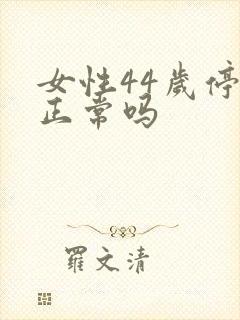 女性44歲停
正常吗
羅文清